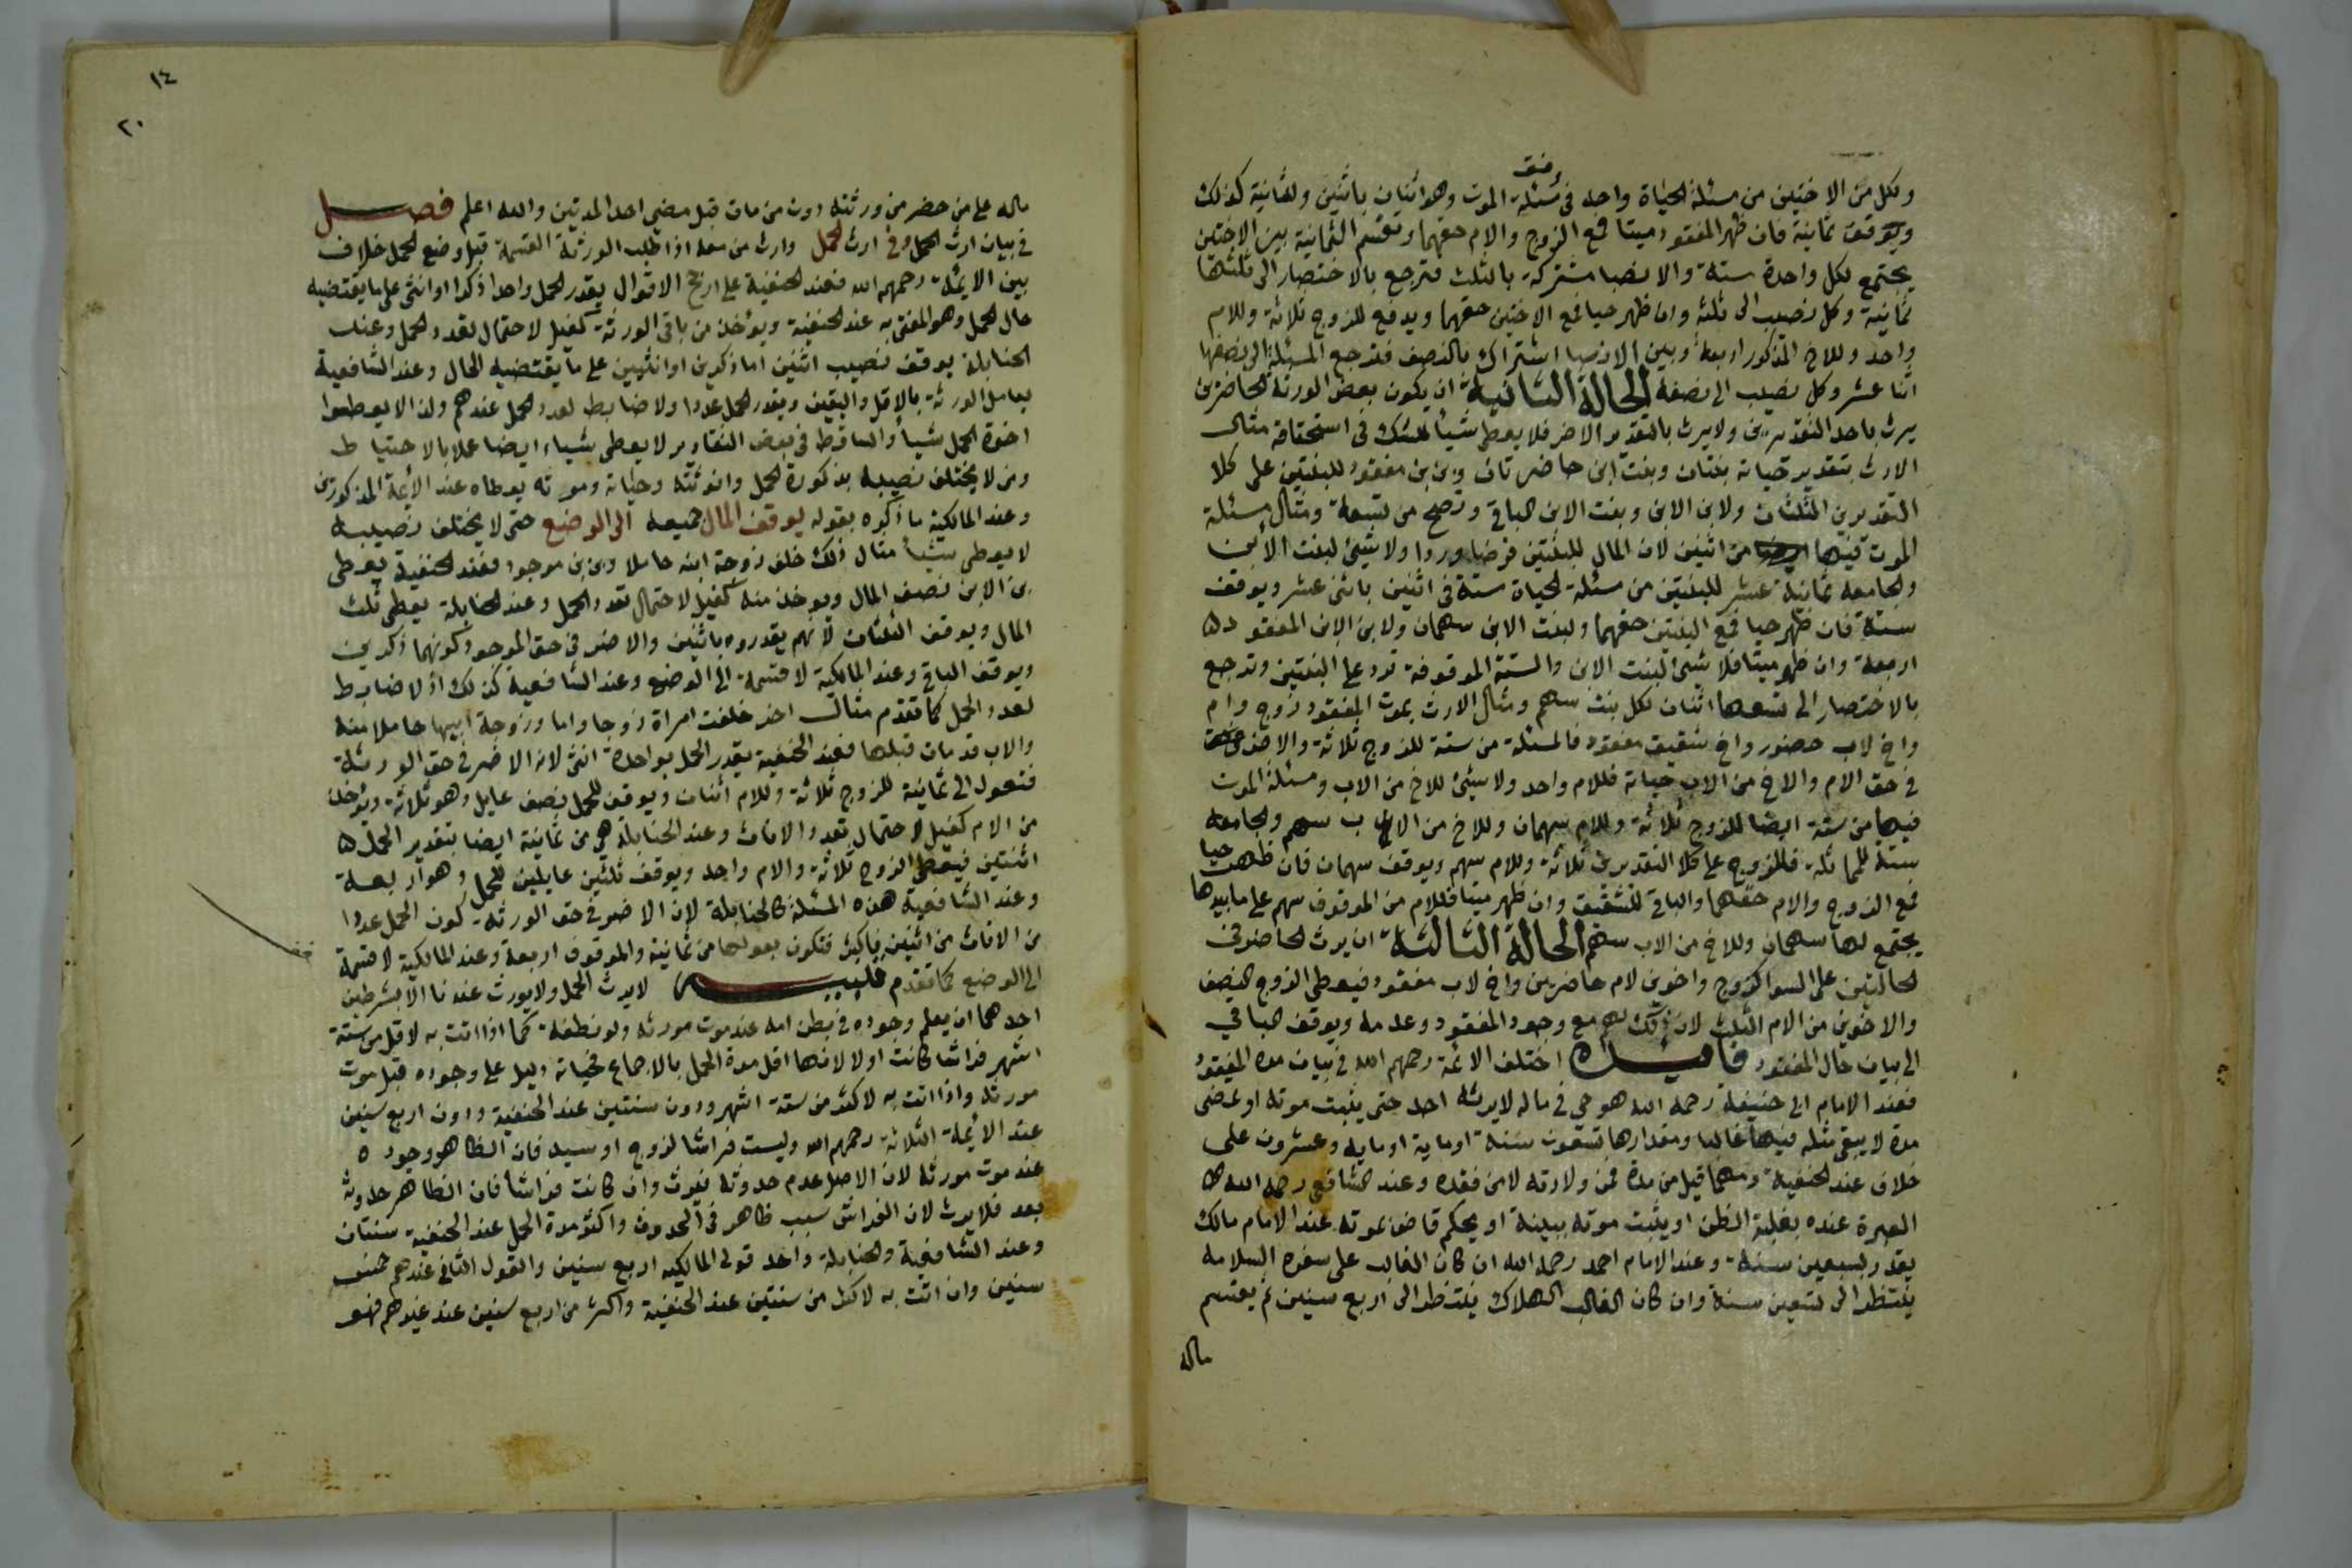 وفق
ولكل من الاختين من مسئلة الحياة واحد في مسئلة الموت وهو اثنان باثنين وللثانية كذلك
ويوقف ثمانية فان ظهر المفقود ميتا فمع الزوج والام حقهما وتقسم الثمانية بين الاختين
يجتمع لكل واحدة ستة والانصبا مشتركة بالثلث فترجع بالاختصار الى ثلثها
ثمانية وكل نصيب الى ثلثه وان ظهر حيا فمع الاختين حقهما ويدفع للزوج ثلاثة وللام
واحد وللاخ المذكور اربعة وبين الانصبا اشتراك بالنصف فترجع المسئلة الى نصفها
اثنا عشر وكل نصيب الى نصفه الحالة الثانية ان يكون بعض الورثة الحاضرين
يرث باحد التقديرين ولا يرث بالتقدير الاخر فلا يعطى شيأ للشك في استحقاقه مثال
الارث بتقدير حياته بنتان وبنت ابن حاضرتان وابن ابن مفقود للبنتين على كلا
التقديرين الثلثان ولابن الابن وبنت الابن الباقي وتصح من تسعة ومثال مسئلة
الموت فيها من اثنين لان المال للبنتين فرضا وردا ولا شيئ لبنت الابن
والجامعه ثمانية عشر للبنتين من مسئلة الحياة ستة في اثنين باثنى عشر ويوقف
ستة فان ظهر حيا فمع البنتين حقهما ولبنت الابن سهمان ولابن الابن المفقود
اربعة وان ظهر ميتا فلا شئ لبنت الابن والستة الموقوفة ترد على البنتين وترجع
بالاختصار الى تسعها اثنان لكل بنت سهم ومثال الارث بموت المفقود زوج وام
واخ لاب حضور واخ شقيق مفقود فالمسئلة من ستة للزوج ثلاثة والاضر
في حق الام والاخ من الاب حياته فللام واحد ولا شيئ للاخ من الاب ومسئلة الموت
فيها من ستة ايضا للزوج ثلاثة وللام سهمان وللاخ من الاب سهم والجامعه
ستة للمماثلة فللزوج على كلا التقديرين ثلاثة وللام سهم ويوقف سهمان فان ظهر حيا
فمع الزوج والام حقهما والباقي للشقيق وان ظهر ميتا فللام من الموقوف سهم على ما بيدها
يجتمع لها سهمان وللاخ من الاب سهم الحالة الثالثة ان يرث الحاضر في
الحالتين على السوا كزوج واخوين لام حاضرين واخ لاب مفقود فيعطى الزوج النصف
والاخوين من الام الثلث لان ذلك لهم مع وجود المفقود وعدمه ويوقف الباقي
الى بيان حال المفقود فايدة اختلف الائمة رحمهم الله في بيان مدة المفقود
فعند الامام ابي حنيفة رحمه الله هو حي في ماله لا يرثه احد حتى يثبت موته او تمضى
مدة لا يبقى مثله فيها غالبا ومقدارها تسعون سنة او ماية او ماية وعشرون على
خلاف عند الحنفية ومهما قيل من مدة فمن ولادته لا من فقده وعند الشافعي رحمه الله
العبرة عنده بغلبة الظن او يثبت موته ببينة او يحكم قاض بموته عند الامام مالك
يقدر بسبعين سنة وعند الامام احمد رحمه الله ان كان الغالب على سفره السلامه
ينتظر الى تسعين سنة وان كان الغالب الهلاك ينتظر الى اربع سنين ثم يقسم
ماله
١٤
٢٠
ماله على من حضر من ورثته دون من مات قبل مضي احد المدتين والله اعلم فصل
في بيان ارث الحمل وفي ارث الحمل وارث من معه اذا طلب الورثة القسمة قبل وضع الحمل خلاف
بين الايمة رحمهم الله فعند الحنفية على ارجح الاقوال يقدر الحمل واحدا ذكرا او انثى على ما يقتضيه
حال الحمل وهو المفتى به عند الحنفية ويؤخذ من باقي الورثة كفيل لاحتمال تعدد الحمل وعند
الحنابلة يوقف نصيب اثنين اما ذكرين او انثيين على ما يقتضيه الحال وعند الشافعية
يعامل الورثة بالاقل واليقين ويقدر الحمل عددا ولا ضابط لعدد الحمل عندهم ولذا لا يعطوا
اخوة الحمل شيأ والساقط في بعض التقادير لا يعطى شياء ايضا عملا بالاحتياط
ومن لا يختلف نصيبه بذكورة الحمل وانوثته وحياته وموته يعطاه عند الأيمة المذكورين
وعند المالكية ما ذكره بقوله يوقف المال جميعه الى الوضع حتى لا يختلف نصيبه
لا يعطى شيأ مثال ذلك خلف زوجة ابنه حاملا وابن ابن موجود فعند الحنفية يعطى
بن الابن نصف المال ويوخذ منه كفيل لاحتمال تعدد الحمل وعند الحنابلة يعطى ثلث
المال ويوقف الثلثان لانهم يقدروه باثنين والاضر في حق الموجود كونهما ذكرين
ويوقف الباقي وعند المالكية لا قسمة الى الوضع وعند الشافعية كذلك اذ لا ضابط
لعدد الحمل كما تقدم مثال اخر خلفت امراة زوجا واما وزوجة ابيها حاملا منه
والاب قد مات قبلها فعند الحنفية يقدر الحمل بواحدة انثى لانه الاضر في حق الورثة
فتعول الى ثمانية للزوج ثلاثة وللام اثنان ويوقف للحمل نصف عايل وهو ثلاثة ويؤخذ
من الام كفيل لاحتمال تعدد الاناث وعند الحنابلة هي من ثمانية ايضا بتقدير الحمل
اثنتين فيعطى الزوج ثلاثة والام واحد ويوقف ثلثين عايلين للحمل وهو اربعة
وعند الشافعية هذه المسئلة كالحنابلة لان الاضر في حق الورثة كون الحمل عددا
من الاناث من اثنين فاكثر فتكون بعولها من ثمانية والموقوف اربعة وعند المالكية لا قسمة
الى الوضع كما تقدم تنبيه لا يرث الحمل ولا يورث عندنا الا بشرطين
احدهما ان يعلم وجوده في بطن امه عند موت مورثه ولو نطفة كما اذا اتت به لاقل من ستة
اشهر فراشا كانت او لا لانها اقل مدة الحمل بالاجماع فحياته دليل على وجوده قبل موت
مورثه واذا اتت به لاكثر من ستة اشهر ودون سنتين عند الحنفية ودون اربع سنين
عند الأيمة الثلاثة رحمهم الله وليست فراشا لزوج او سيد فان الظاهر وجوده
عند موت مورثه لان الاصل عدم حدوثه فيورث وان كانت فراشا فان الظاهر حدوثه
بعد فلا يرث لان الفراش سبب ظاهر في الحدوث واكثر مدة الحمل عند الحنفية سنتان
وعند الشافعية والحنابلة واحد قولي المالكيه اربع سنين والقول الثاني عندهم خمس
سنين وان اتت به لاكثر من سنتين عند الحنفية واكثر من اربع سنين عند غيرهم فهو